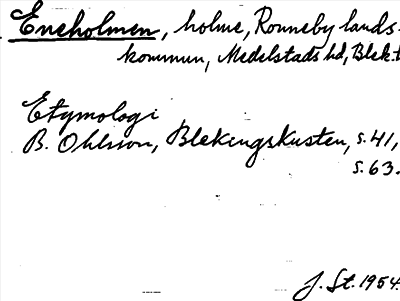 Eneholmen, holme, Ronneby lands-
kommun, Medelstads hd, Blek.l
Etymologi
B. Ohlsson, Blekingskusten, s. 41,
s. 63.
J. St. 1954.